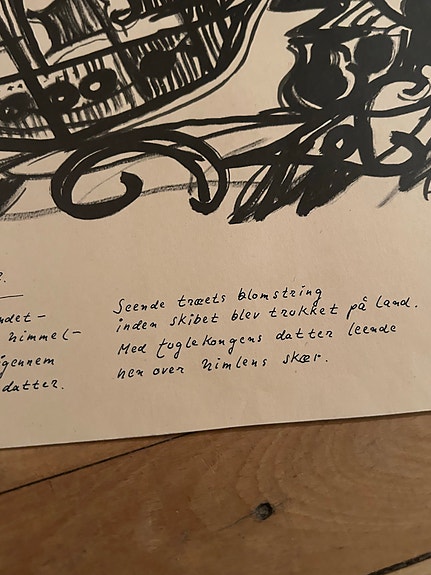 ndet-
himmel-
igennem
datter.
Seende træets blomstring
inden skibet blev trukket på land.
Med fuglekongens datter leende
hen over himlens skær.